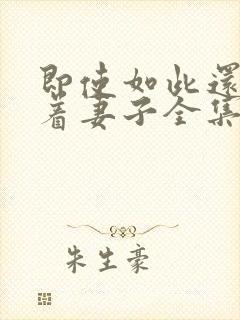 即使如此還
著妻子全集
朱生豪